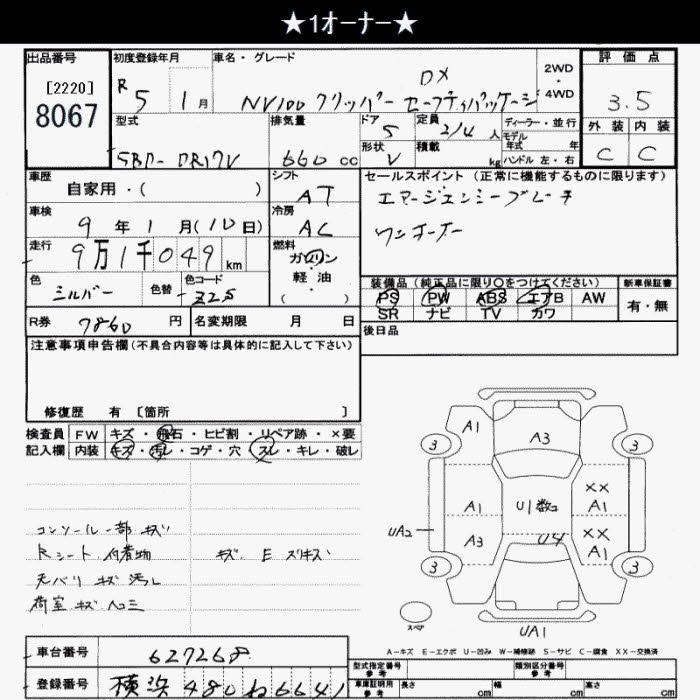 ★1オーナー★
出品番号
[2220]
8067
初度登録年月
R 5 1月
車名・グレード
DX
NV100 クリッパー セーフティパッケージ
2WD
・
4WD
評価点
3.5
外装 内装
C C
型式
5BD-DR17V
排気量
660 cc
ドア
5
形状
V
定員
2/4人
積載
kg
ディーラー・並行
モデル
年式 年
ハンドル 左・右
車歴
自家用・( )
シフト
AT
車検
9年1月(10日)
冷房
AC
走行
9万1千049km
燃料
ガソリン
・
軽・油
( )
色
シルバー
色替
色コード
Z2S
R券 7860円
名変期限 月 日
セールスポイント(正常に機能するものに限ります)
エマージェンシーブレーキ
ワンオーナー
装備品(純正品に限り○をつけてください)
PS PW ABS エアB AW
SR ナビ TV カワ
新車保証書
有・無
後日品
注意事項申告欄(不具合内容等は具体的に記入して下さい)
修復歴 有 [箇所 ]
検査員
記入欄
FW キズ・飛石・ヒビ割・リペア跡・×要
内装 キズ・汚レ・コゲ・穴・スレ・キレ・破レ
コンソール一部キズ
Rシート 付着物 キズ E スリキズ
天バリ キズ 汚レ
荷室 キズ ヘコミ
A1
A3
3
3
A1
U1数コ
XX
A1
UA2
A3
U4
XX
A1
3
3
スペア
UA1
A-キズ E-エクボ U-凹み W-補修跡 S-サビ C-腐食 XX-交換済
車台番号 627268
登録番号 横浜480ね6641
型式指定番号
参考
類別区分番号
参考
車庫証明用
参考
長さ cm 幅 cm 高さ cm